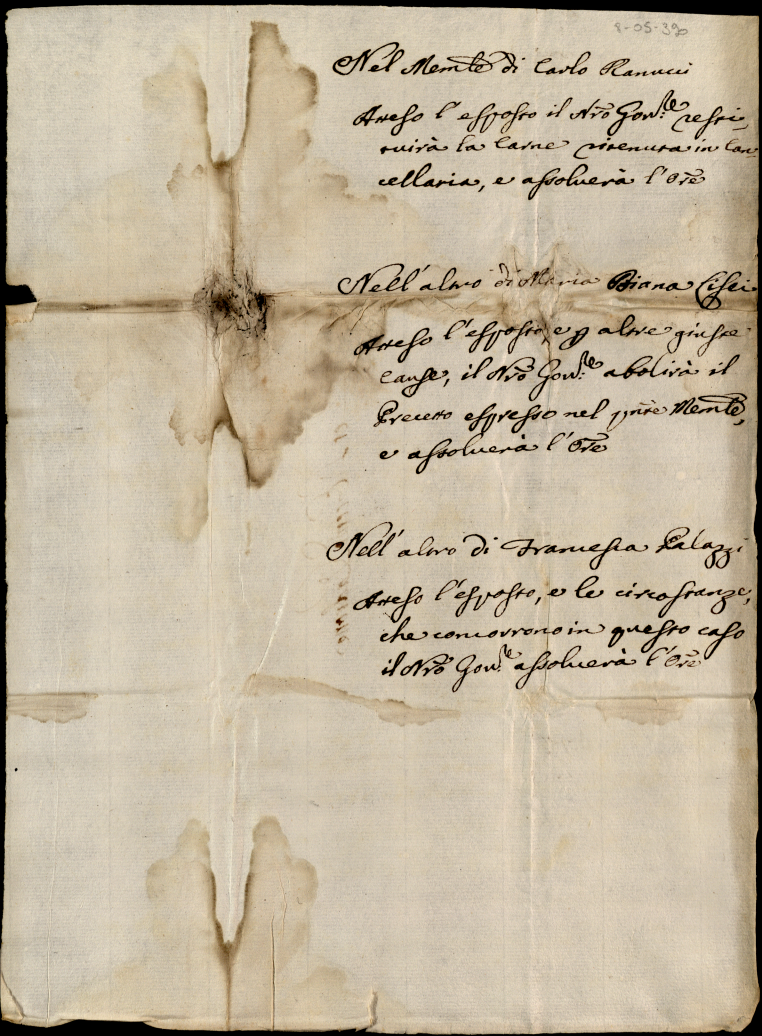 8-05-390
Nel Memle di Carlo Ranucci
Atteso l'esposto il Nro Gov.re resti,
tuirà la Carne ritenuta in Can,
cellaria, e assoluerà l'Ore
Nell'altro di Maria Diana
Atteso l'esposto, e p altre giuste
cause, il Nro Gov.re abolirà il
Precetto espresso nel pnte Memle,
e assoluerà l'Ore
Nell'altro di Francesca Palazzi
Atteso l'esposto, e le circostanze,
che concorrono in questo caso
il Nro Gov.re assoluerà l'Ore